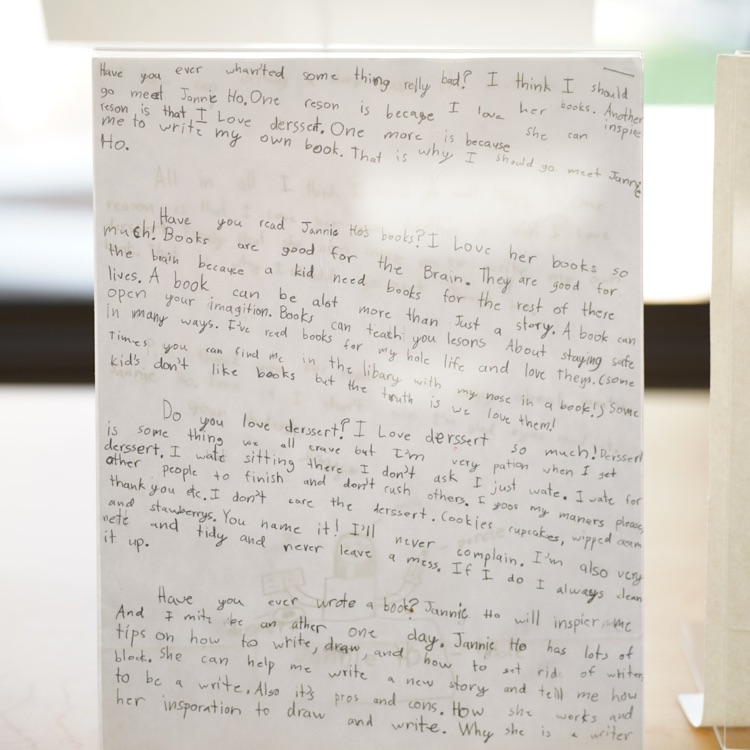 Have you ever whan'ted some thing relly bad? I think I should
go meet Jannie Ho. One reson is becase I love her books. Another
reson is that I Love derssert. One more is because she can inspire
me to write my own book. That is why I should go meet Jannie
Ho.
Have you read Jannie Ho's books? I Love her books so
much! Books are good for the Brain. They are good for
the brain because a kid need books for the rest of there
lives. A book can be alot more than Just a story. A book can
open your imagition. Books can teach you lesons About staying safe
in many ways. I've read books for my hole life and love them. (some
Times you can find me in the libary with my nose in a book!) Some
kid's don't like books but the truth is we love them!
Do you love derssert? I Love derssert so much! Derssert
is some thing we all crave but I'm very pation when I get
derssert. I wate sitting there I don't ask I just wate. I wate for
other people to finish and don't rush others. I my maners please,
thank you etc. I don't care the derssert. Cookies cupcakes, wipped cream
and stawberrys. You name it! I'll never complain. I'm also very
nete and tidy and never leave a mess. If I do I always clean
it up.
Have you ever wrote a book? Jannie Ho will inspier me
And I mite be an ather one day. Jannie Ho has lots of
tips on how to write, draw, and how to get rid of writers
block. She can help me write a new story and tell me how
to be a write. Also it's pros and cons. How she works and
her insporation to draw and write. Why she is a writer